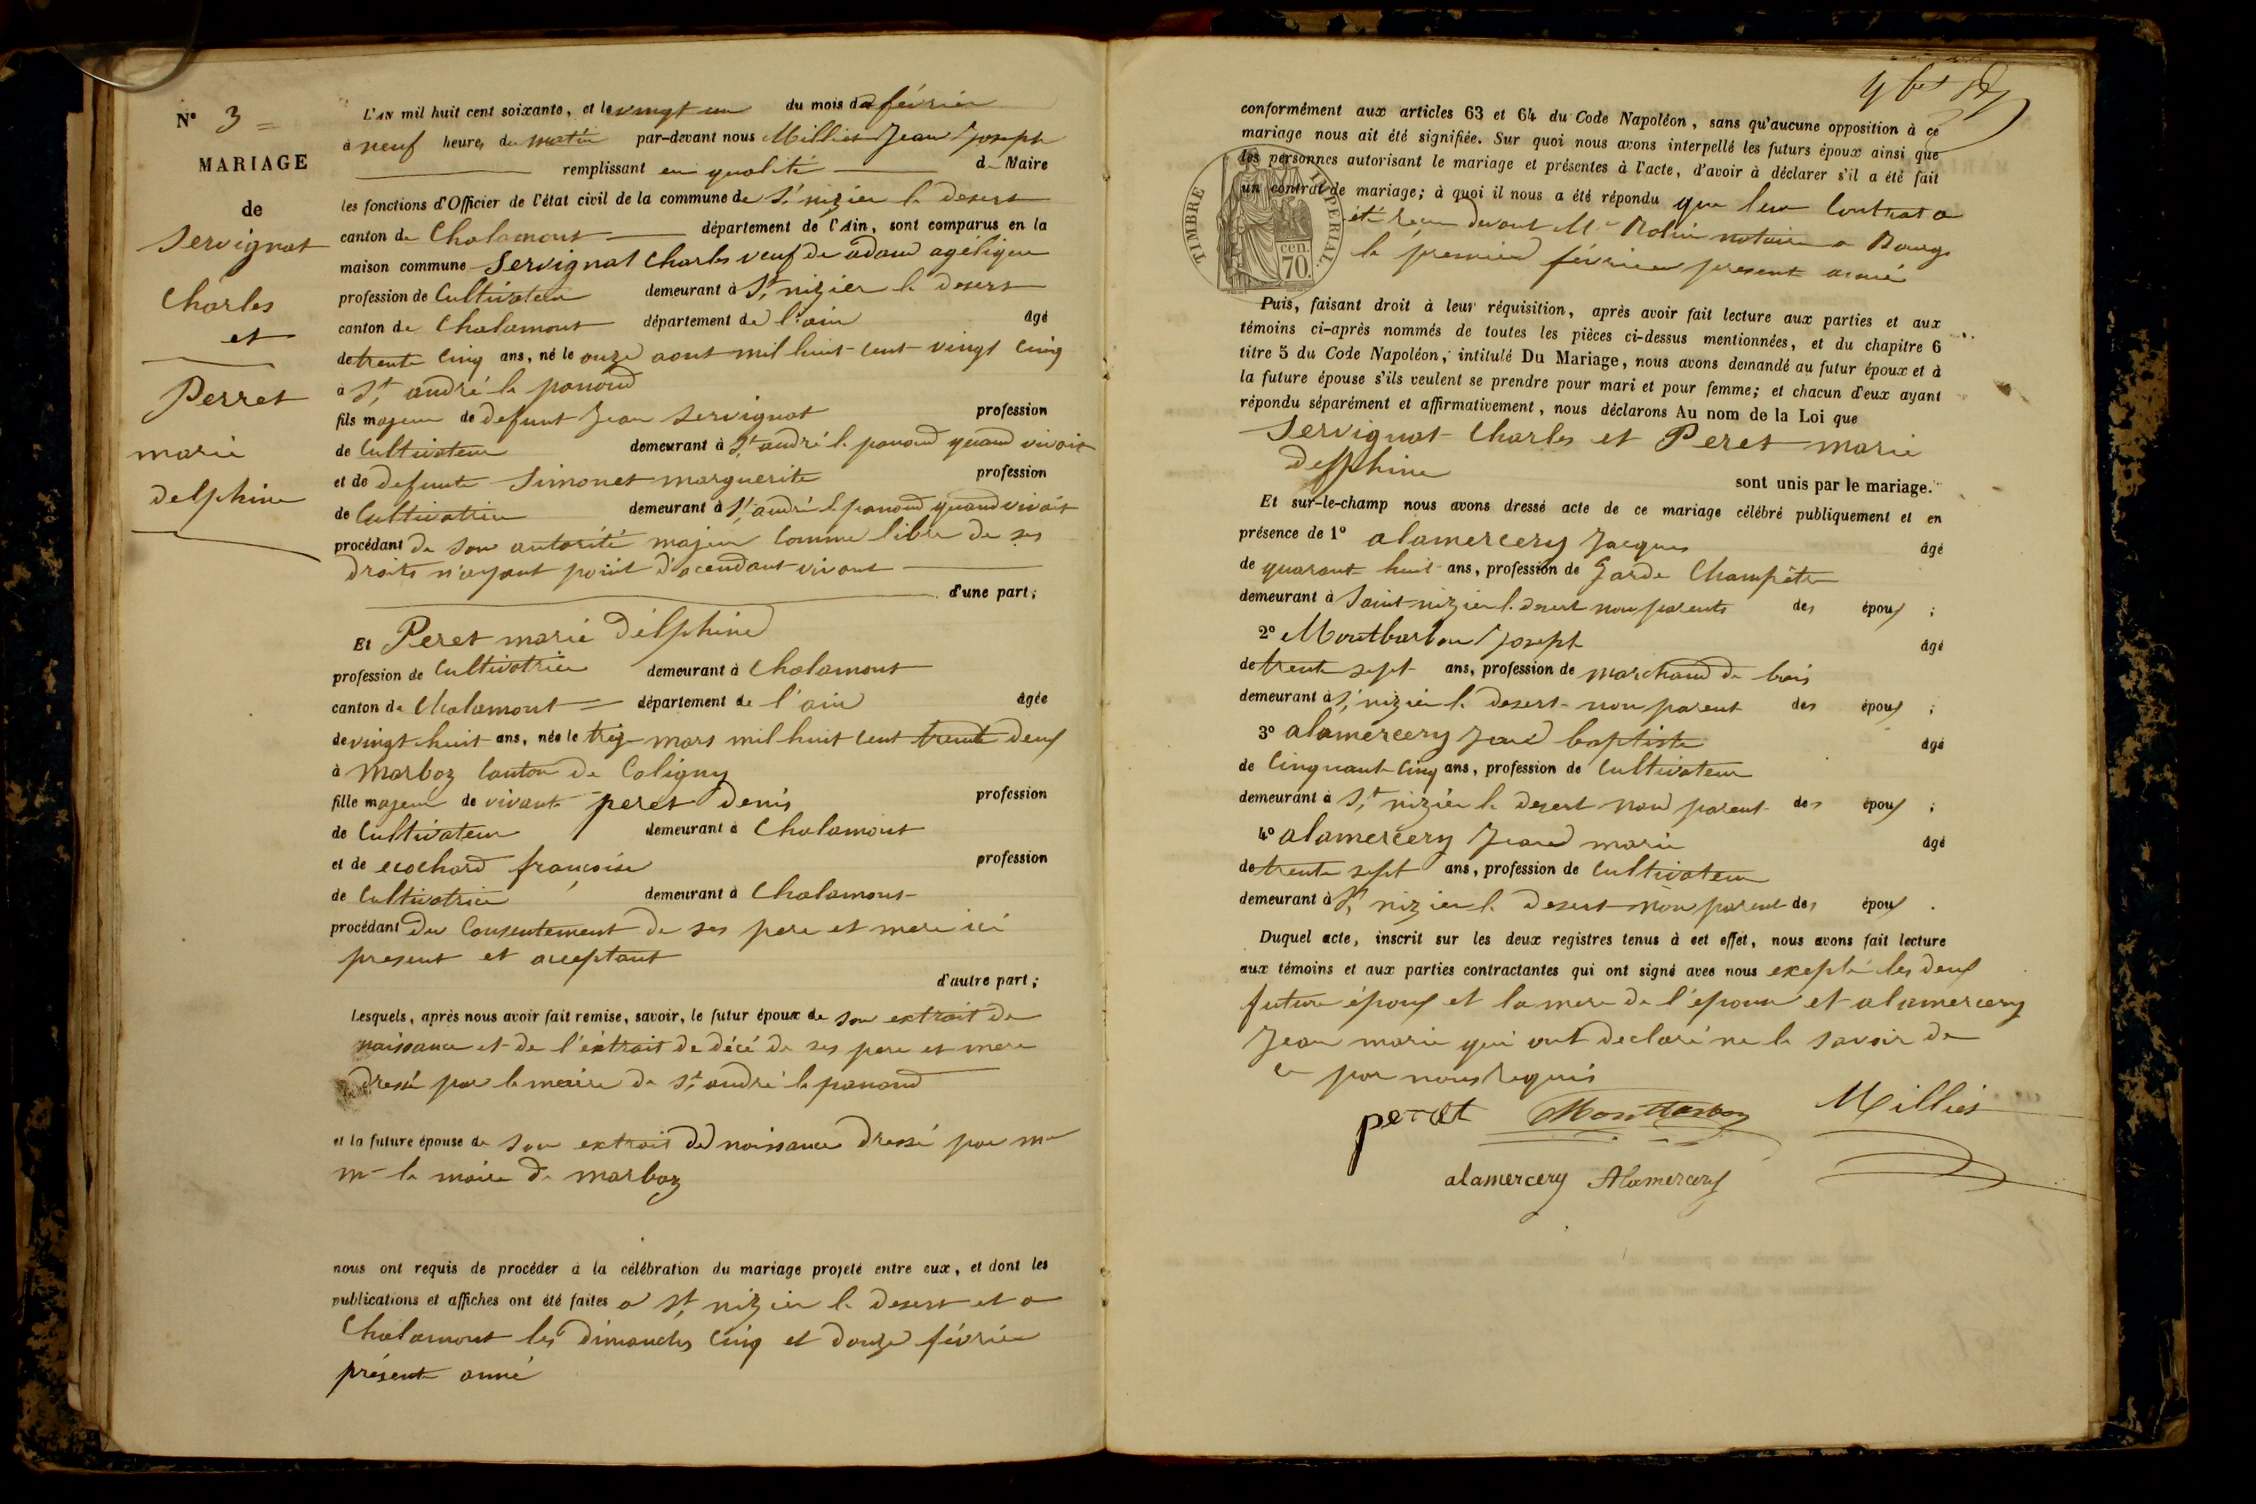 N° 3
MARIAGE
de
Servignat
Charles
et
Perret
marie
delphine
L'AN mil huit cent soixante, et le vingt un du mois de février
à neuf heures du matin par-devant nous Millied Jean Joseph
remplissant en qualité de Maire
les fonctions d'Officier de l'état civil de la commune de St nizier le desert
canton de Chalamont département de l'Ain, sont comparus en la
maison commune Servignat Charles veuf de adam agélique
profession de Cultivateur demeurant à St nizier le desert
canton de Chalamont département de l'ain âgé
de trente cinq ans, né le onze aout mil huit cent vingt cinq
à St andré le panoud
fils majeur de defunt Jean Servignat profession
de Cultivateur demeurant à St andré le panoud quand vivait
et de defunte Simonet marguerite profession
de Cultivatrice demeurant à St andré le panoud quand vivait
procédant de son autorité majeur comme libre de ses
droits n'ayant point d'acendant vivant
d'une part;
Et Peret marie Délphine
profession de Cultivatrice demeurant à Chalamont
canton de Chalamont département de l'ain âgée
de vingt huit ans, née le treize mars mil huit cent trente deux
à Marboz Canton de Coligny
fille majeur de vivant peret denis profession
de Cultivateur demeurant à Chalamont
et de ecochard françoise profession
de Cultivatrice demeurant à Chalamont
procédant du Consentement de ses pere et mere ici
present et acceptant
d'autre part;
Lesquels, après nous avoir fait remise, savoir, le futur époux de son extrait de
naissance et de l'éxtrait de décé de ses pere et mere
dressé par le maire de St andré le panoud
et la future épouse de son extrait de naissance dressé par m
mr le maire de marboz
nous ont requis de procéder à la célébration du mariage projeté entre eux, et dont les
publications et affiches ont été faites a St nizier le desert et a
Chalamont les dimanches cinq et douze février
présente anné
conformément aux articles 63 et 64 du Code Napoléon, sans qu'aucune opposition à ce
mariage nous ait été signifiée. Sur quoi nous avons interpellé les futurs époux ainsi que
les personnes autorisant le mariage et présentes à l'acte, d'avoir à déclarer s'il a été fait
un contrat de mariage; à quoi il nous a été répondu que leur Contrat a
été reçu devant Me Rolin notaire a Bourg
le premier février present année
TIMBRE IMPERIAL.
cen.
70.
Puis, faisant droit à leur réquisition, après avoir fait lecture aux parties et aux
témoins ci-après nommés de toutes les pièces ci-dessus mentionnées, et du chapitre 6
titre 5 du Code Napoléon, intitulé Du Mariage, nous avons demandé au futur époux et à
la future épouse s'ils veulent se prendre pour mari et pour femme; et chacun d'eux ayant
répondu séparément et affirmativement, nous déclarons Au nom de la Loi que
Servignat Charles et Peret marie
Delphine
sont unis par le mariage.
Et sur-le-champ nous avons dressé acte de ce mariage célébré publiquement et en
présence de 1° alamercery Jacques âgé
de quarant huit ans, profession de Garde Champêtre
demeurant à Saint nizier le desert non parents des époux ;
2° Montbarbon Joseph âgé
de trente sept ans, profession de marchand de bois
demeurant à St nizier le desert non parent des époux ;
3° alamercery Jean baptiste âgé
de Cinquant cinq ans, profession de Cultivateur
demeurant à St nizier le desert non parent des époux ;
4° alamercery Jean marie âgé
de trente sept ans, profession de Cultivateur
demeurant à St nizier le desert non parent des époux .
Duquel acte, inscrit sur les deux registres tenus à cet effet, nous avons fait lecture
aux témoins et aux parties contractantes qui ont signé avec nous exepté les deux
future époux et la mere de l'épouse et alamercery
Jean marie qui ont declaré ne le savoir de
ce par nous requis
peret Montbarbon Millied
alamercery Alamercery